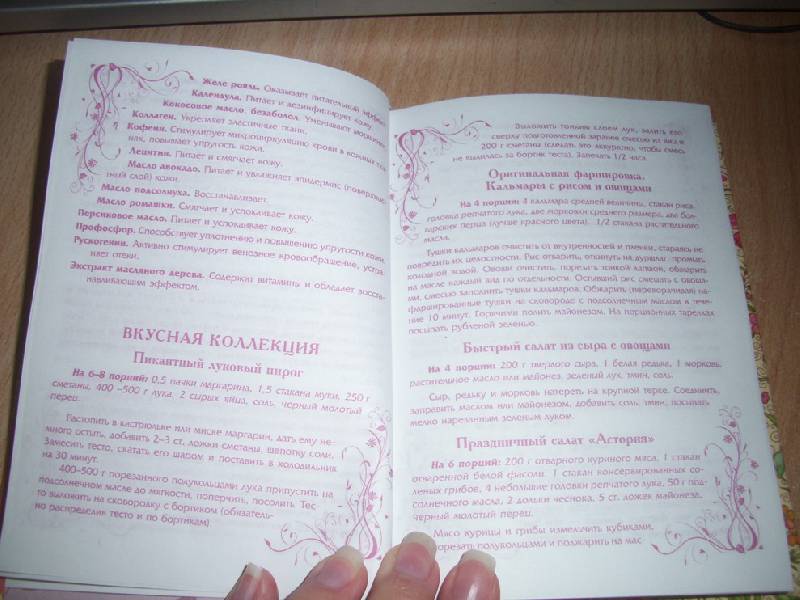 Желе рояль. Оказывает питательный эффект.
Календула. Питает и дезинфицирует кожу.
Кокосовое масло, безаболол. Уменьшают воспаления
Коллаген. Укрепляет эластичные ткани.
Кофеин. Стимулирует микроциркуляцию крови в кожных тка-
нях, повышает упругость кожи.
Лецитин. Питает и смягчает кожу.
Масло авокадо. Питает и увлажняет эпидермис (поверхност-
ный слой) кожи.
Масло подсолнуха. Восстанавливает.
Масло ромашки. Смягчает и успокаивает кожу.
Персиковое масло. Питает и успокаивает кожу.
Профосфир. Способствует уплотнению и повышению упругости кожи.
Рускогенин. Активно стимулирует венозное кровообращение, устра-
няет отеки.
Экстракт масляного дерева. Содержит витамины и обладает восста-
навливающим эффектом.
ВКУСНАЯ КОЛЛЕКЦИЯ
Пикантный луковый пирог
На 6–8 порций: 0,5 пачки маргарина, 1,5 стакана муки, 250 г
сметаны, 400 –500 г лука, 2 сырых яйца, соль, черный молотый
перец.
Растопить в кастрюльке или миске маргарин, дать ему не-
много остыть, добавить 2–3 ст. ложки сметаны, щепотку соли.
Замесить тесто, скатать его шаром, и поставить в холодильник
на 30 минут.
400–500 г порезанного полукольцами лука припустить на
подсолнечном масле до мягкости, поперчить, посолить. Тес-
то выложить на сковородку с бортиком (обязатель-
но распределив тесто и по бортикам)
Выложить тонким слоем лук, залить его
сверху подготовленной заранее смесью из яиц и
200 г сметаны (следить это аккуратно, чтобы смесь
не вылилась за бортик теста). Запекать 1/2 часа.
Оригинальная фарцировка.
Кальмары с рисом и овощами
На 4 порции: 4 кальмара средней величины, стакан риса,
головка репчатого лука, две морковки среднего размера, две бол-
гарских перца (лучше красного цвета), 1/2 стакана растительного
масла.
Тушки кальмаров очистить от внутренностей и пленки, стараясь не
повредить их целостности. Рис отварить, откинуть на дуршлаг, промыть
холодной водой. Овощи очистить, порезать тонкой лапшой, обжарить
на масле каждый вид по отдельности. Остывший рис смешать с овоща-
ми, смесью заполнить тушки кальмаров. Обжарить (переворачивая) на-
фаршированные тушки на сковороде с подсолнечным маслом в тече-
ние 10 минут. Горячими полить майонезом. На порционных тарелках
посыпать рубленой зеленью.
Быстрый салат из сыра с овощами
На 4 порции: 200 г твердого сыра, 1 белая редька, 1 морковь,
растительное масло или майонез, зеленый лук, тмин, соль.
Сыр, редьку и морковь натереть на крупной терке. Соединить,
заправить маслом или майонезом, добавить соль, тмин, посыпать
мелко нарезанным зеленым луком.
Праздничный салат «Астория»
На 6 порций: 200 г отварного куриного мяса, 1 стакан
отваренной белой фасоли, 1 стакан консервированных со-
леных грибов, 4 небольшие головки репчатого лука, 50 г под-
солнечного масла, 2 дольки чеснока, 5 ст. ложек майонеза,
черный молотый перец.
Мясо курицы и грибы измельчить кубиками,
порезать полукольцами и поджарить на мас